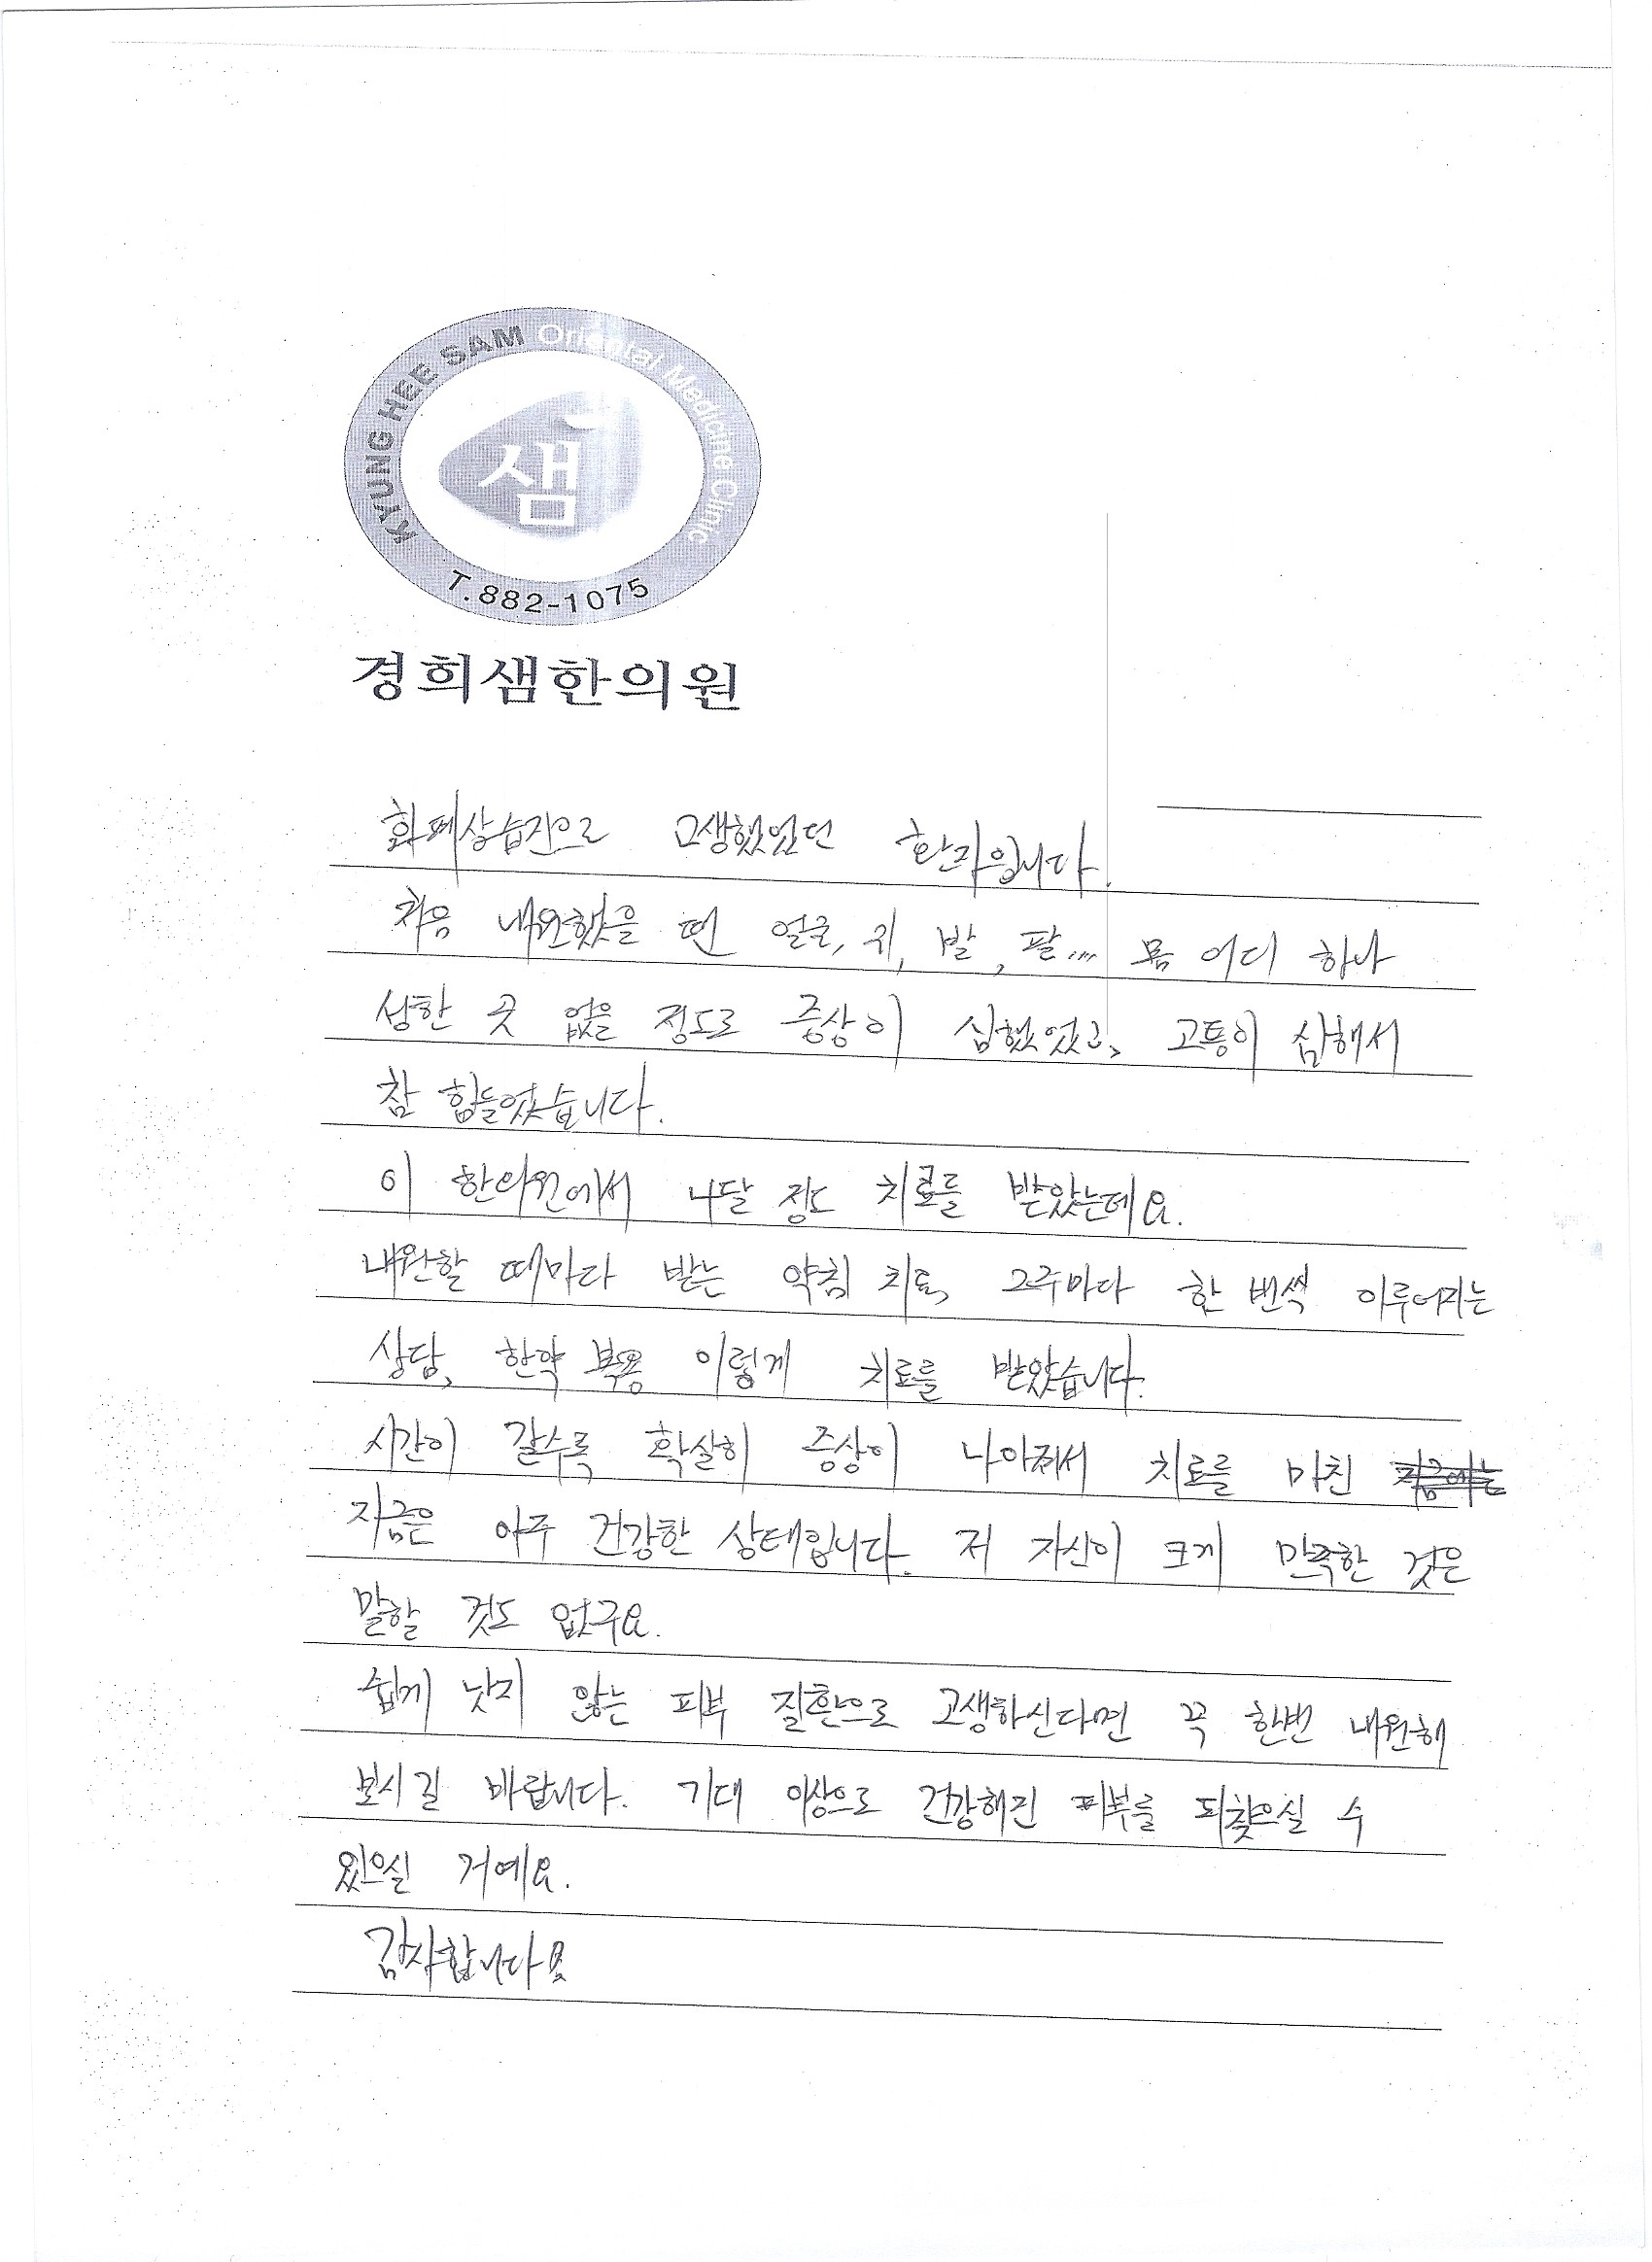 KYUNG HEE SAM Oriental Medicine Clinic
샘
T.882-1075
경희샘한의원
화폐상습진으로 고생했었던 환자입니다.
처음 내원했을 땐 얼굴, 귀, 발, 팔.... 몸 어디 하나
성한 곳 없을 정도로 증상이 심했었고, 고통이 심해서
참 힘들었습니다.
이 한의원에서 넉달 정도 치료를 받았는데요.
내원할 때마다 받는 약침 치료, 2주마다 한 번씩 이루어지는
상담, 한약 복용 이렇게 치료를 받았습니다.
시간이 갈수록 확실히 증상이 나아져서 치료를 마친 지금에는
지금은 아주 건강한 상태입니다. 저 자신이 크게 만족한 것은
말할 것도 없구요.
쉽게 낫지 않는 피부 질환으로 고생하신다면 꼭 한번 내원해
보시길 바랍니다. 기대 이상으로 건강해진 피부를 되찾으실 수
있으실 거예요.
감사합니다